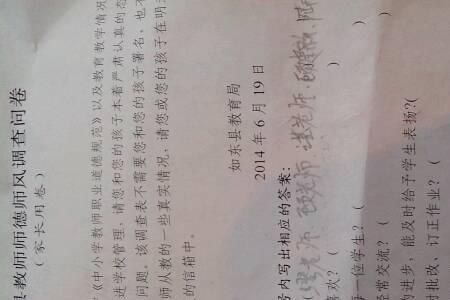 县教师师德师风调查问卷
（家长用卷）
《中小学教师职业道德规范》以及教育教学情况
进学校管理，请您和您的孩子本着严肃认真的态
问题。该调查表不需要您和您的孩子署名，也不
师从教的一些真实情况，请您或您的孩子在明
的信箱中。
如东县教育局
2014年6月19日
号内写出相应的答案：
老师、老师、老师
喜欢？（ ）
每一位学生？（ ）
经常交流？（ ）
的进步，能及时给予学生表扬？（
时批改、订正作业？（